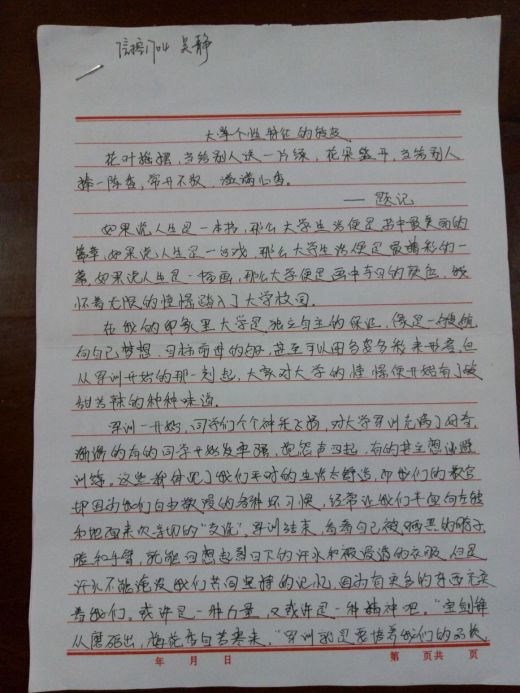 信控1704 吴静
大学个性特征的转变
花叶摇摆,当给别人送一片绿,花朵盛开,当给别人
捧一阵香,常开不败,溢满心香。
——题记
如果说人生是一本书,那么大学生活便是书中最美丽的
篇章,如果说人生是一台戏,那么大学生活便是最精彩的一
幕,如果说人生是一幅画,那么大学便是画中的颜色,我
怀着无限的憧憬踏入了大学校园。
在我的印象里大学是,独立自主的保证,像是一艘航
向自己梦想,目标前母的,甚至可以用多姿多彩来形容,但
从军训开始的那一刻起,大家对大学的憧憬便开始有了酸
甜苦辣的种种味道。
军训一开始,同学们个个神采飞扬,对大学军训充满了好奇,
渐渐的有的同学开始发牢骚,抱怨声四起,有的甚至想逃避
训练,这些都体现了我们平时的生活太舒适,而我们的教官
却因为我们自由散漫的各种坏习惯,经常让我们半面向左转
和地面来次亲切的"交流",军训结束,看着自己被晒黑的脖子
脸和手臂,就能回想起烈日下的汗水和被浸透的衣服,但是
汗水不能淹没我们共同坚持的记忆,因为有更多的东西充实
着我们。或许是一种力量,又或许是一种精神吧。"宝剑锋
从磨砺出,梅花香自苦寒来。"军训就是要培养我们的品质
年 月 日 第 页共 页